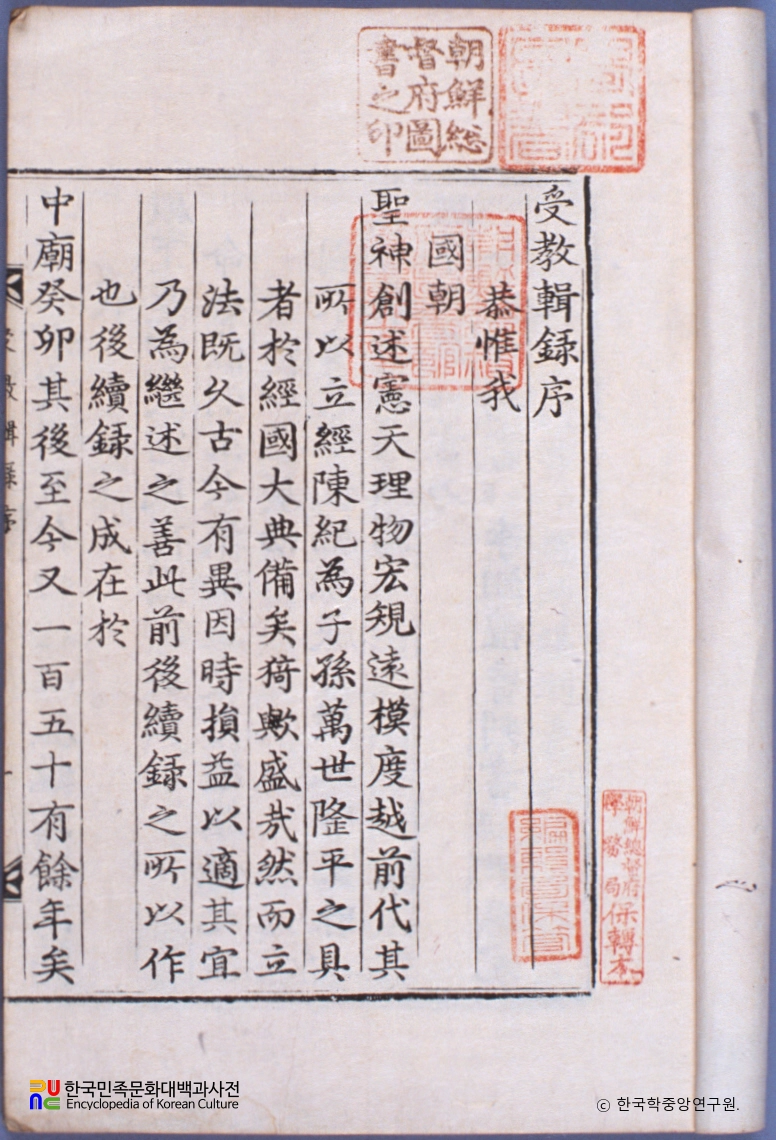 受教輯錄序
恭惟我
國朝
聖神創述憲天理物宏規遠模度越前代其
所以立經陳紀為子孫萬世隆平之具
者於經國大典備矣猗歟盛㢤然而立
法既久古今有異因時損益以適其宜
乃為繼述之善此前後續錄之所以作
也後續錄之成在於
中廟癸卯其後至今又一百五十有餘年矣
朝鮮総
督府圖
書之印
朝鮮總督府
局
保轉本
한국민족문화대백과사전
Encyclopedia of Korean Culture
ⓒ 한국학중앙연구원.